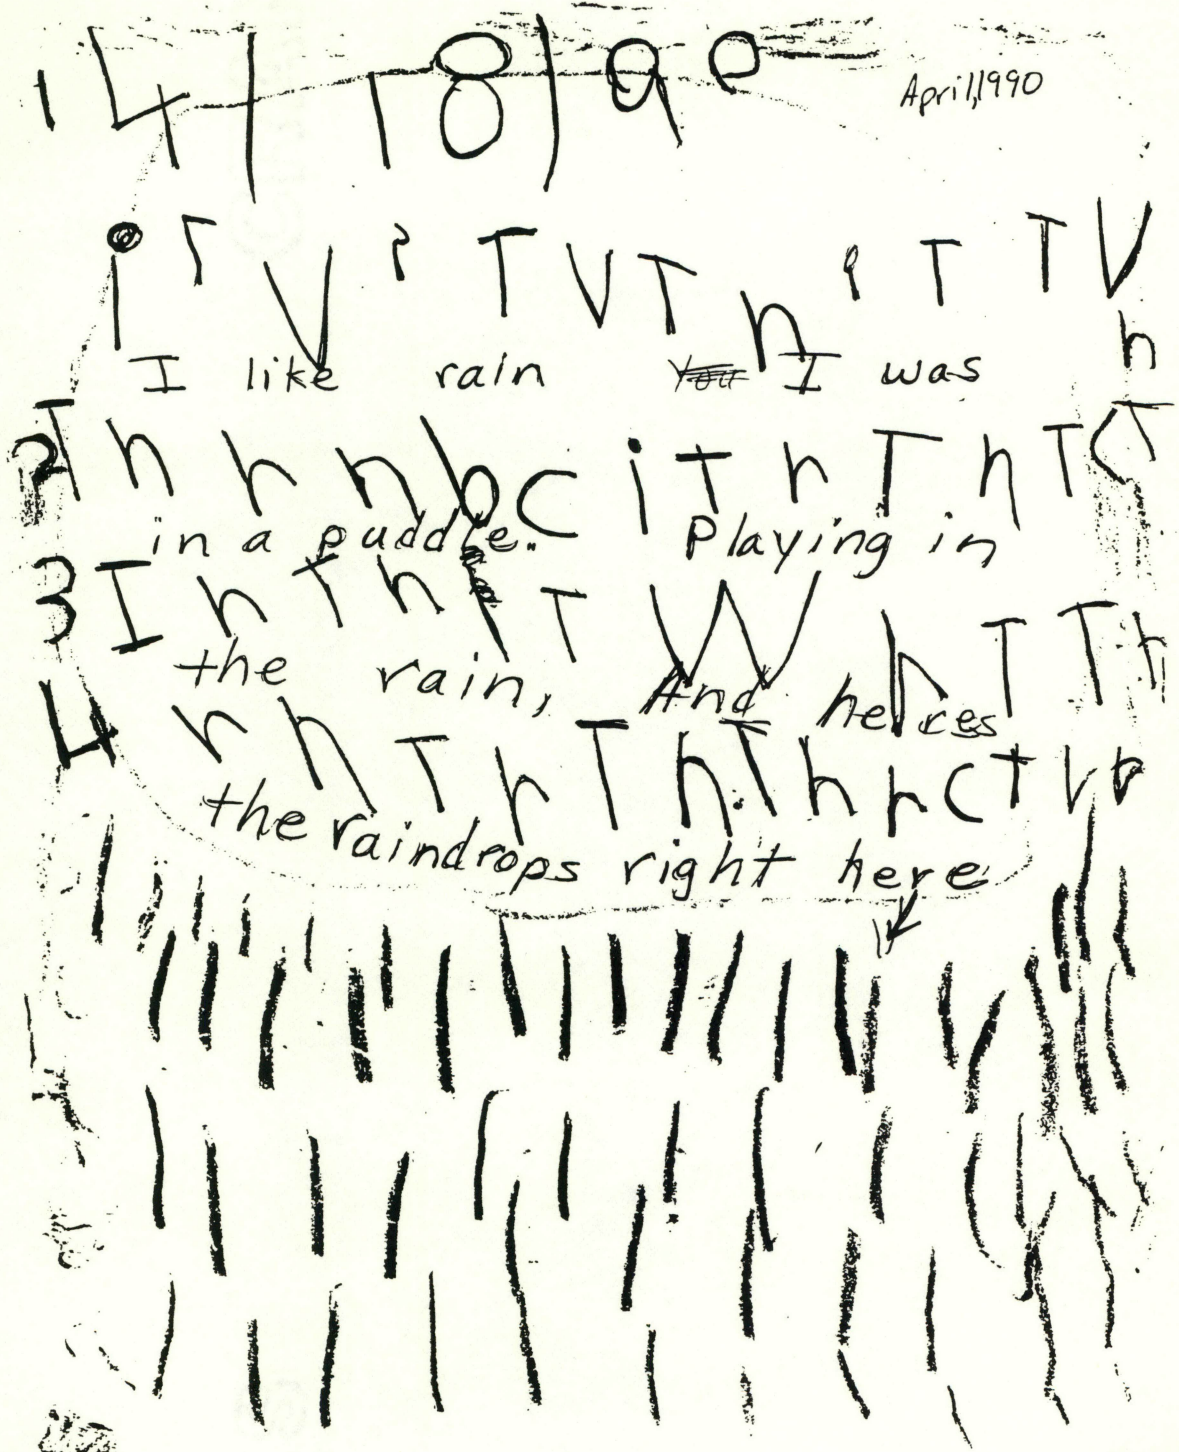 14/18/90
April, 1990
i T V T V T n i T T V
h
I like rain You I was
2 T h r n b C i T r T n T C T
in a puddle. Playing in
3 I h T h T T W h T T h
the rain, And heres
4 r h T r T h T h r C T V
the raindrops right here